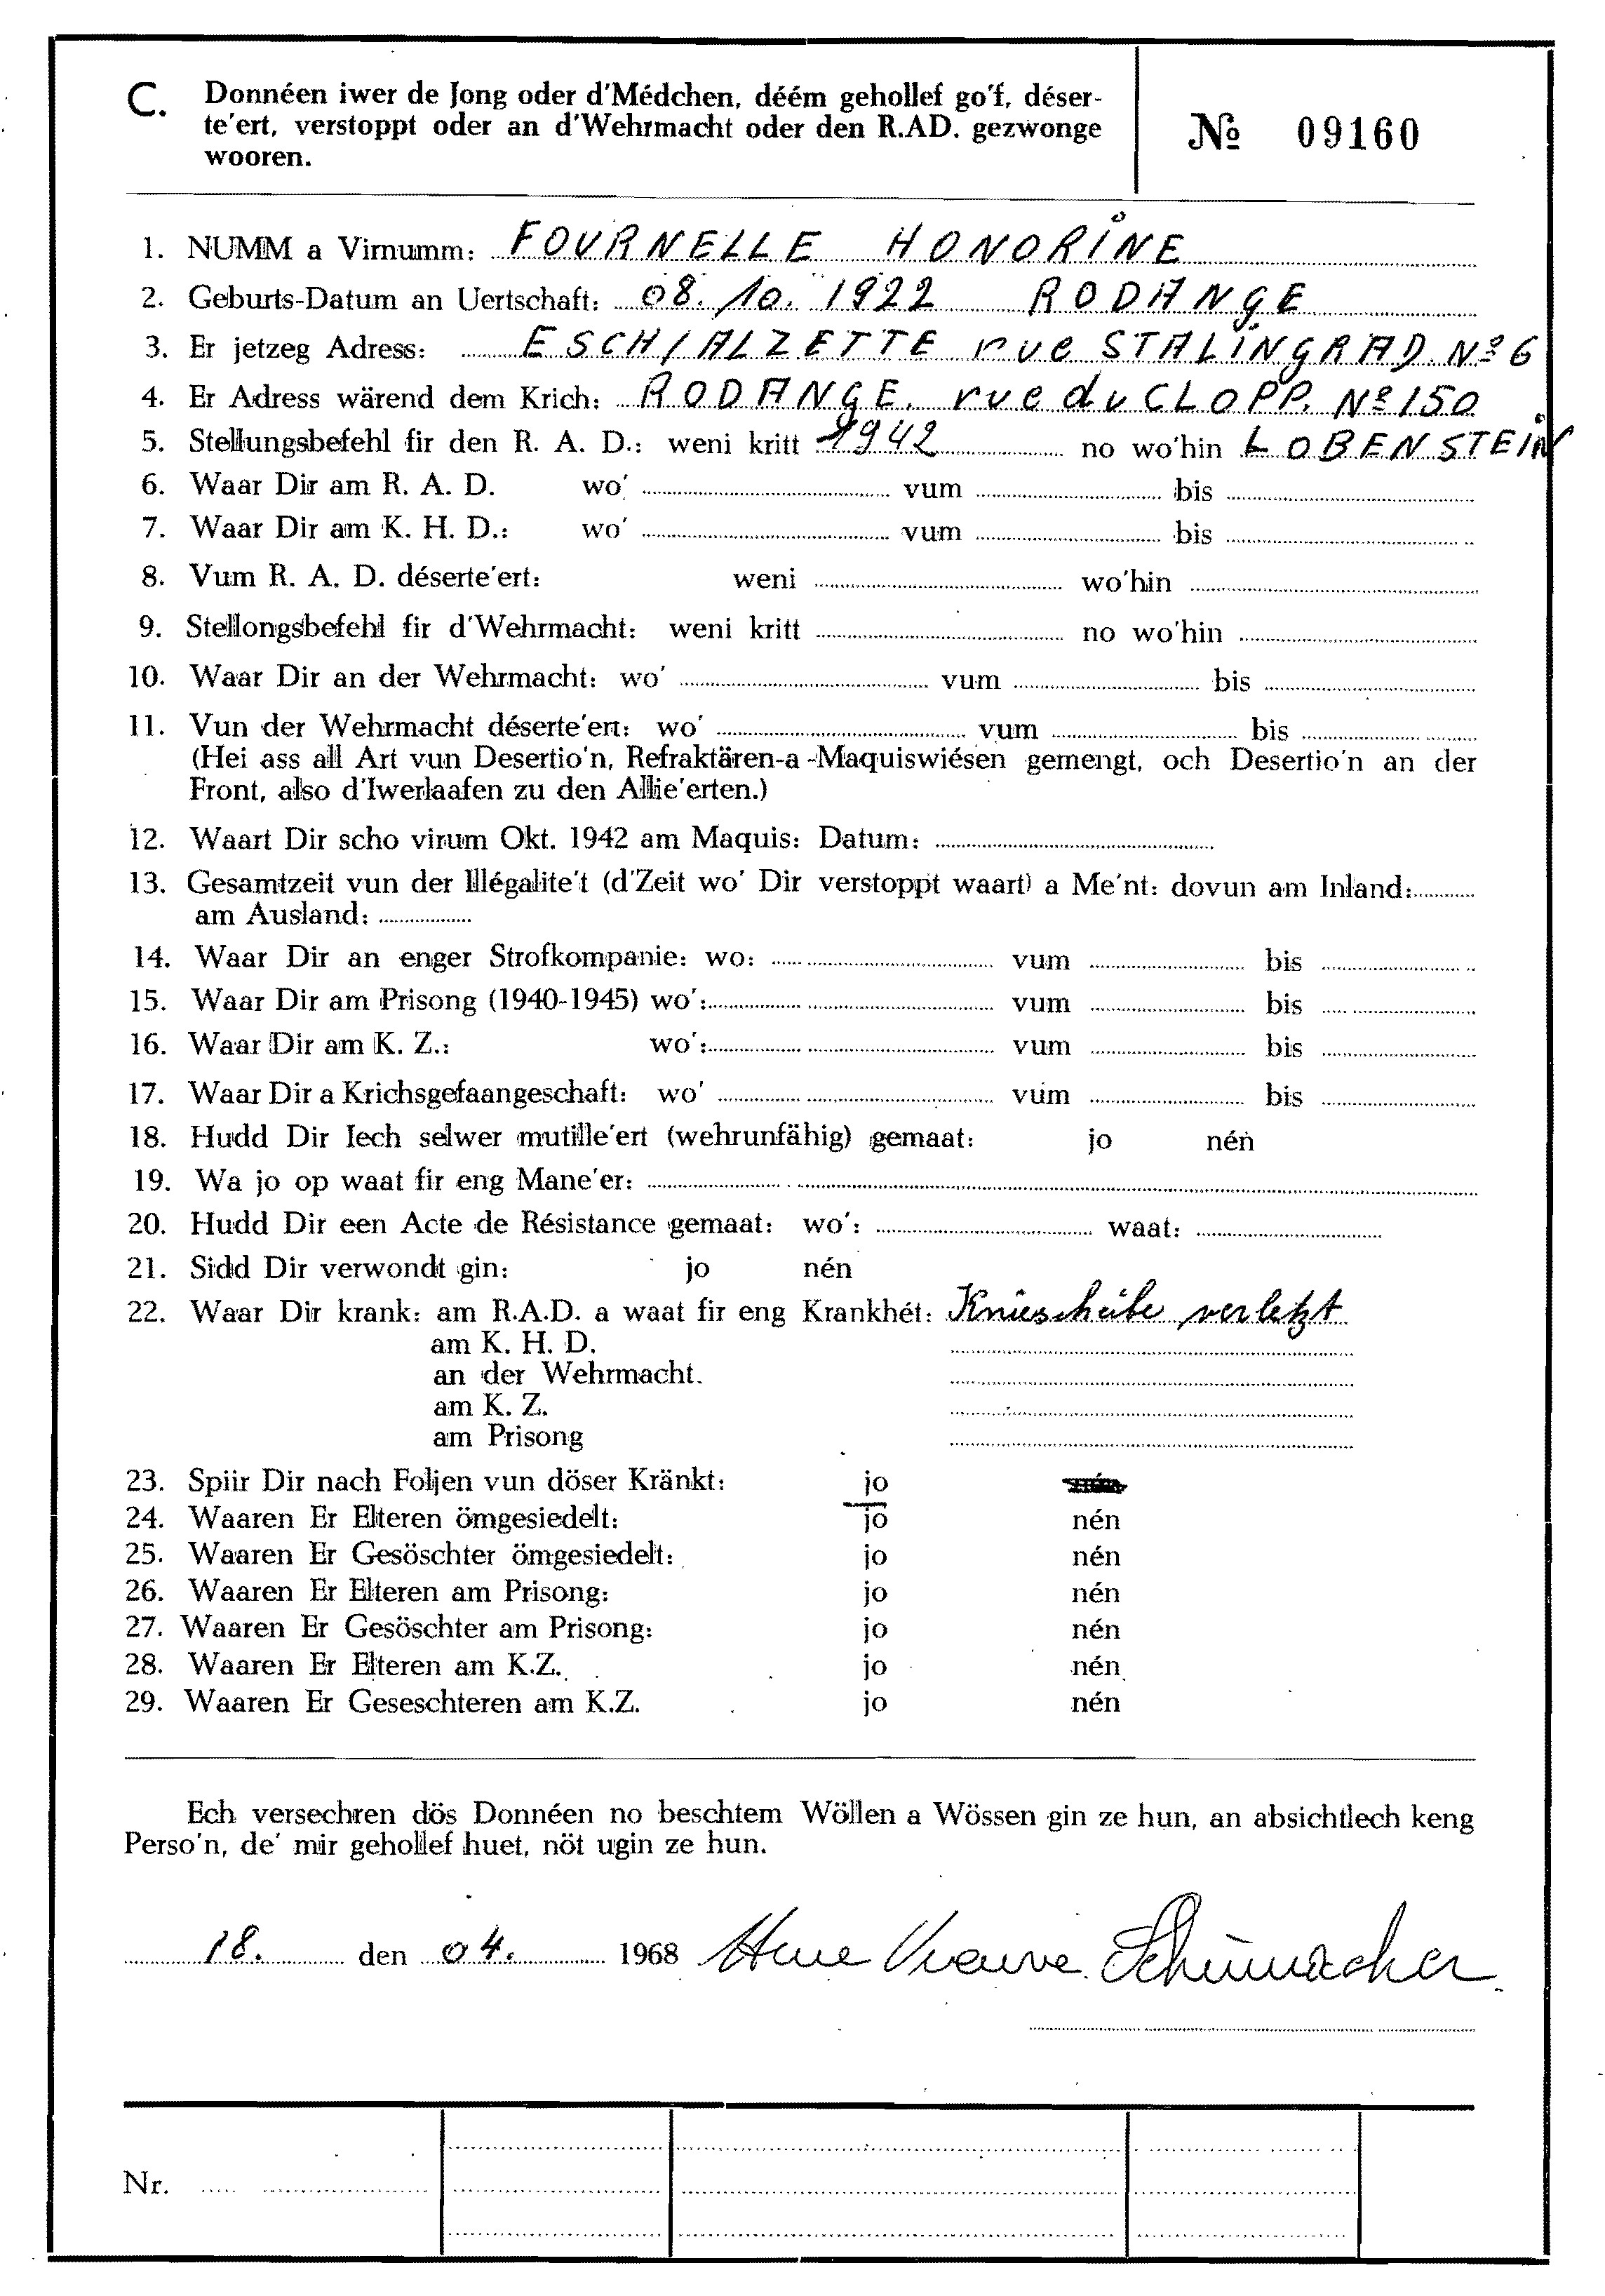 C. Donnéen iwer de Jong oder d'Médchen, déém gehollef go'f, déser-
te'ert, verstoppt oder an d'Wehrmacht oder den R.AD. gezwonge
wooren.
№ 09160
1. NUMM a Virnumm: FOURNELLE HONORINE
2. Geburts-Datum an Uertschaft: 08. 10. 1922 RODANGE
3. Er jetzeg Adress: ESCH/ALZETTE rue STALINGRAD. Nº 6
4. Er Adress wärend dem Krich: RODANGE. rue du CLOPP. Nº 150
5. Stellungsbefehl fir den R. A. D.: weni kritt 1942 no wo'hin LOBENSTEIN
6. Waar Dir am R. A. D. wo' vum bis
7. Waar Dir am K. H. D.: wo' vum bis
8. Vum R. A. D. déserte'ert: weni wo'hin
9. Stellongsbefehl fir d'Wehrmacht: weni kritt no wo'hin
10. Waar Dir an der Wehrmacht: wo' vum bis
11. Vun der Wehrmacht déserte'ert: wo' vum bis
(Hei ass all Art vun Desertio'n, Refraktären-a -Maquiswiésen gemengt, och Desertio'n an der
Front, also d'Iwerlaafen zu den Allie'erten.)
12. Waart Dir scho virum Okt. 1942 am Maquis: Datum:
13. Gesamtzeit vun der Illégalite't (d'Zeit wo' Dir verstoppt waart) a Me'nt: dovun am Inland:
am Ausland:
14. Waar Dir an enger Strofkompanie: wo: vum bis
15. Waar Dir am Prisong (1940-1945) wo': vum bis
16. Waar Dir am K. Z.: wo': vum bis
17. Waar Dir a Krichsgefaangeschaft: wo' vum bis
18. Hudd Dir Iech selwer mutille'ert (wehrunfähig) gemaat: jo nén
19. Wa jo op waat fir eng Mane'er:
20. Hudd Dir een Acte de Résistance gemaat: wo': waat:
21. Sidd Dir verwondt gin: jo nén
22. Waar Dir krank: am R.A.D. a waat fir eng Krankhét: Kniescheibe verletzt
am K. H. D.
an der Wehrmacht.
am K. Z.
am Prisong
23. Spiir Dir nach Foljen vun döser Kränkt: jo nén
24. Waaren Er Elteren ömgesiedelt: jo nén
25. Waaren Er Gesöschter ömgesiedelt: jo nén
26. Waaren Er Elteren am Prisong: jo nén
27. Waaren Er Gesöschter am Prisong: jo nén
28. Waaren Er Elteren am K.Z. jo nén
29. Waaren Er Geseschteren am K.Z. jo nén
Ech versechren dös Donnéen no beschtem Wöllen a Wössen gin ze hun, an absichtlech keng
Perso'n, de' mir gehollef huet, nöt ugin ze hun.
18. den 04. 1968 Mme Veuve Schumacher
Nr.